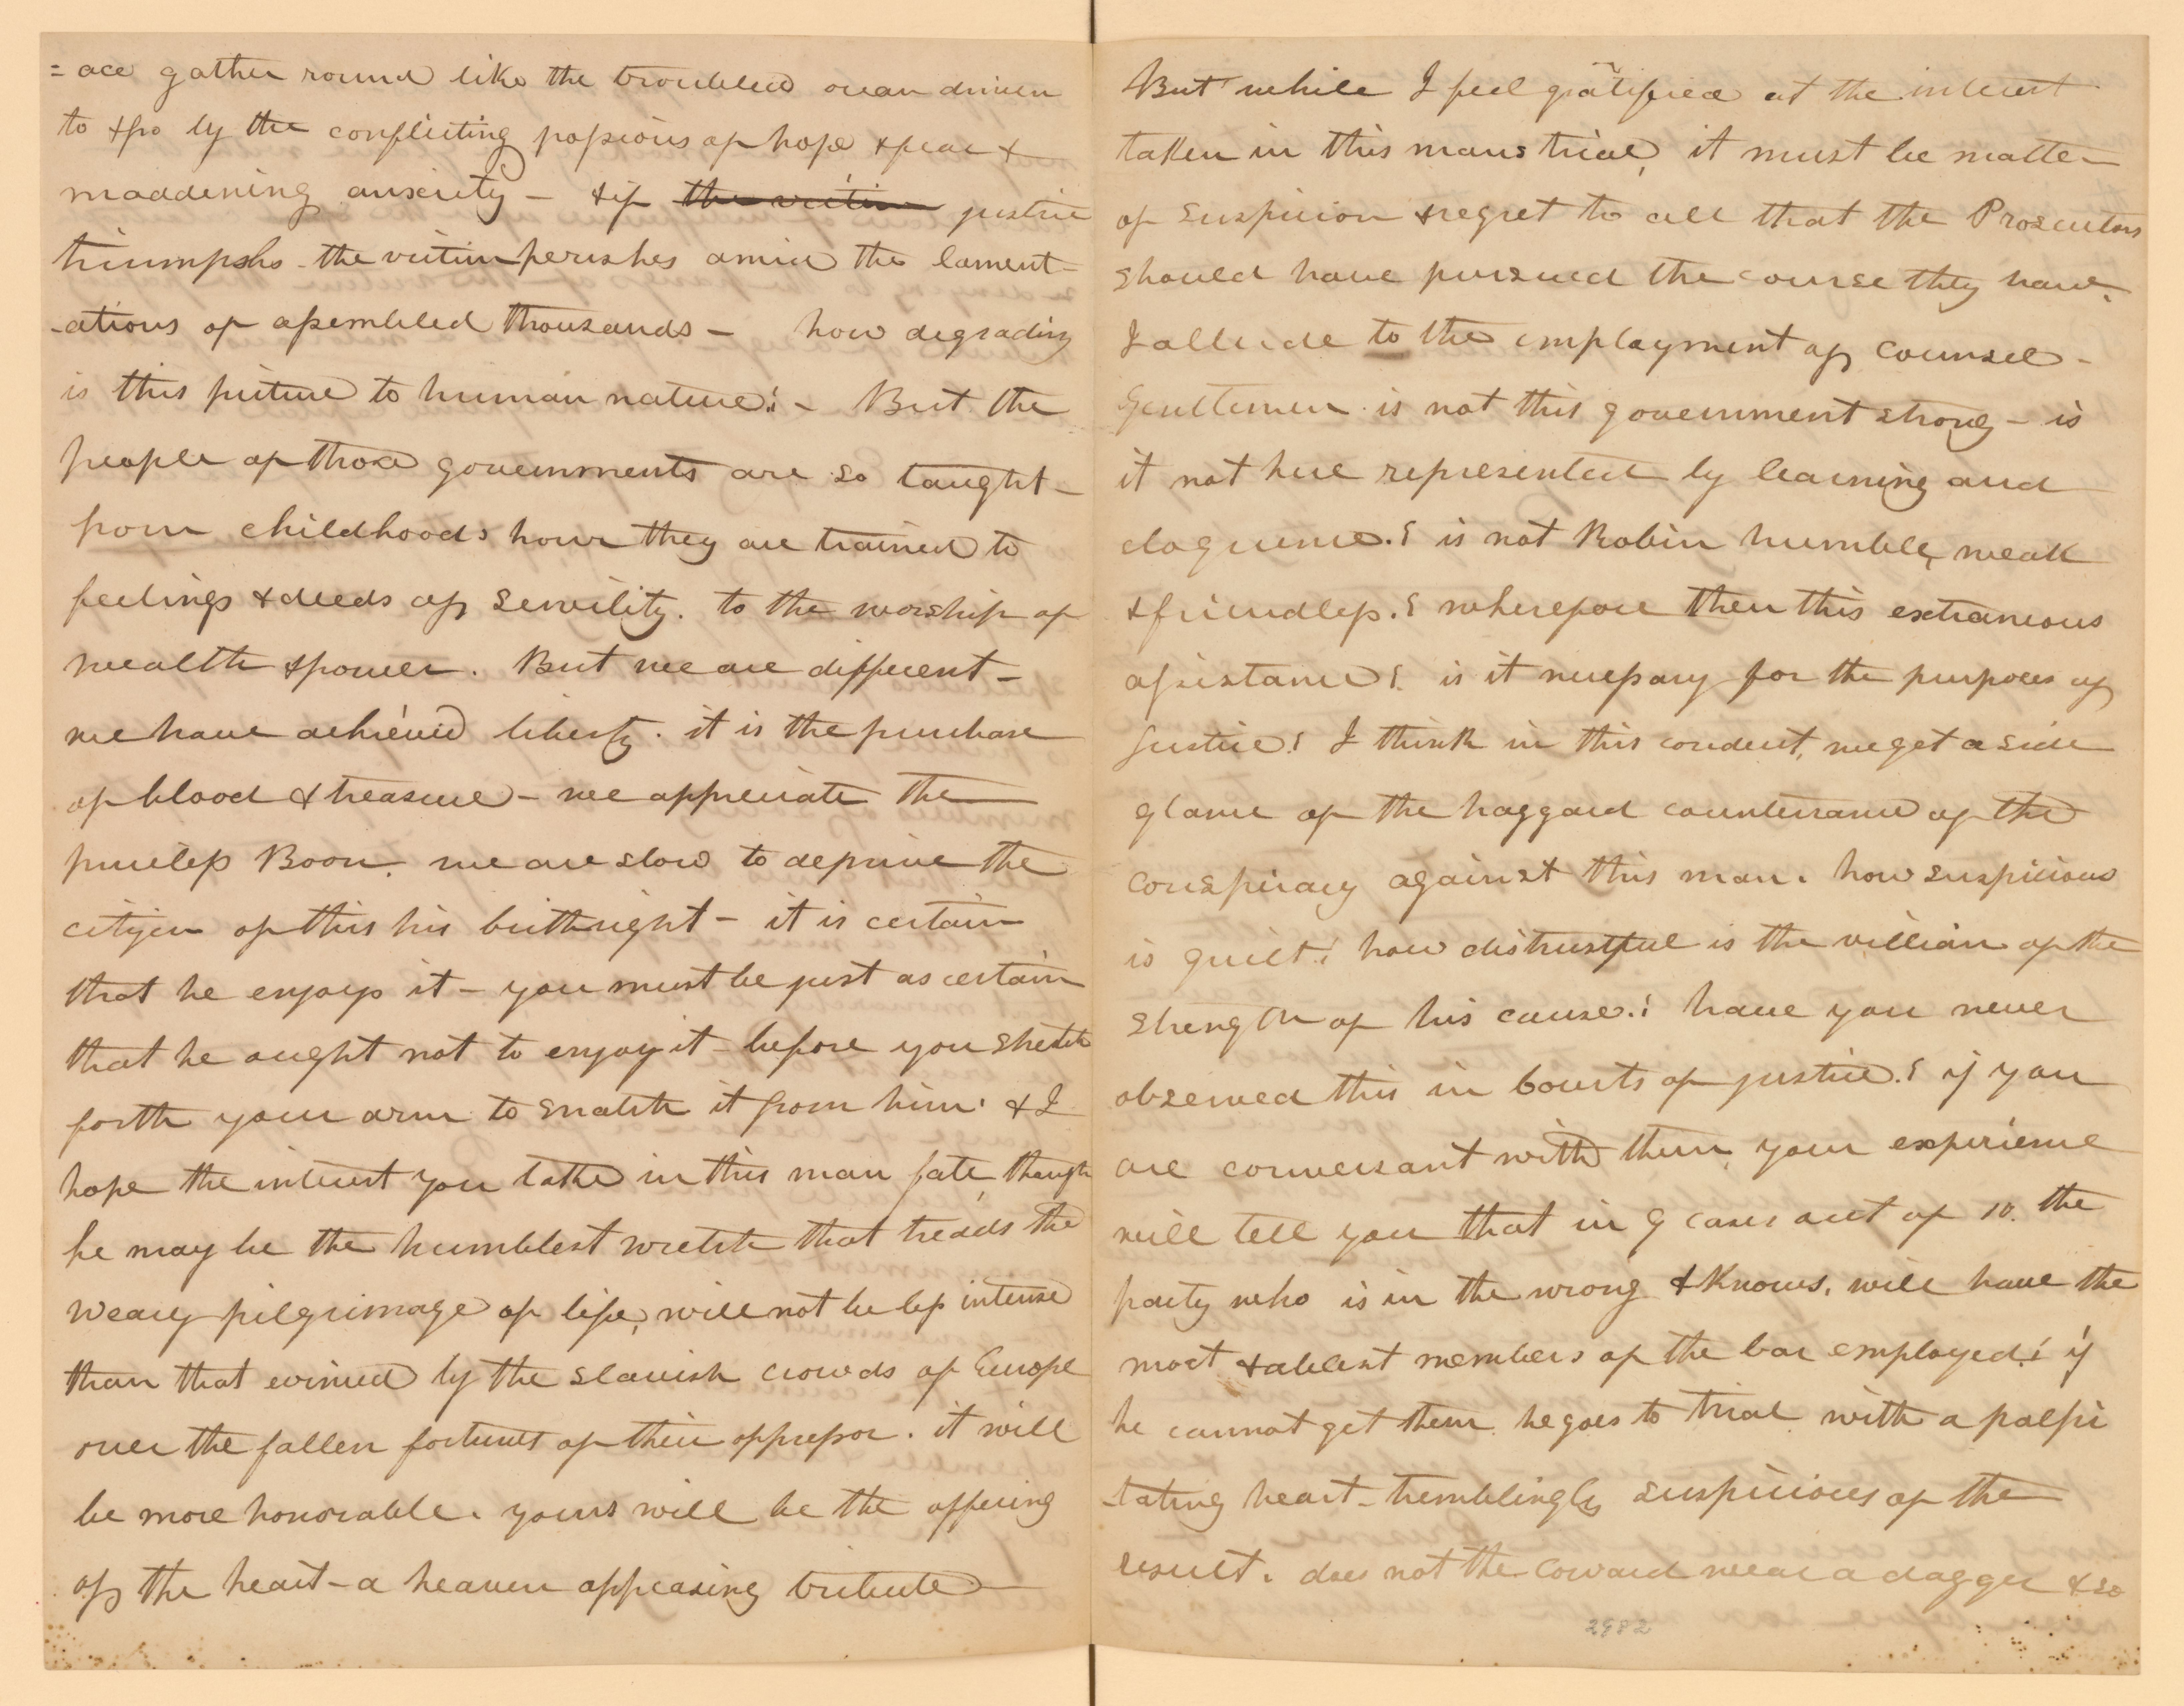 =ace gather round like the troubled ocean driven
to & fro by the conflicting passions of hope & fear &
maddening anxiety - & if the victim justice
triumpshs - the victim perishes amid the lament-
-ations of assembled thousands - how degrading
is this picture to human nature! - But the
people of those governments are so taught -
from childhoods hour they are trained to
feelings & deeds of servility. to the worship of
wealth & power. But we are different -
we have achieved liberty. it is the purchase
of blood & treasure - we appreciate the
priceless Boon. we are slow to deprive the
citizen of this his birthright - it is certain
that he enjoys it - you must be just as certain
that he ought not to enjoy it - before you stretch
forth your arm to snatch it from him. & I
hope the interest you take in this man fate, though
he may be the humblest wretch that treads the
weary pilgrimage of life, will not be less intense
than that evinced by the slavish crowds of Europe
over the fallen fortunes of their oppressor. it will
be more honorable. yours will be the offering
of the heart - a heaven appeasing tribute
But while I feel gratified at the interest
taken in this mans trial, it must be matter
of suspicion & regret to all that the Prosecutors
should have pursued the course they have.
I allude to the employment of counsel -
Gentlemen is not this government strong - is
it not here represented by learning and
eloquence.? is not Robin humble, weak
& friendless.? wherefore then this extraneous
assistance? is it necessary for the purposes of
justice? I think in this conduct, we get a side
glance of the haggard countenance of the
conspiracy against this man. how suspicious
is guilt! how distrustful is the villian of the
strength of his cause.! have you never
observed this in Courts of justice.? if you
are conversant with them, your experience
will tell you that in 9 cases out of 10. the
party who is in the wrong & knows, will have the
most & ablest members of the bar employed! if
he cannot get them he goes to trial with a palpi
-tating heart - tremblingly suspicious of the
result. does not the coward wear a dagger & so
2982